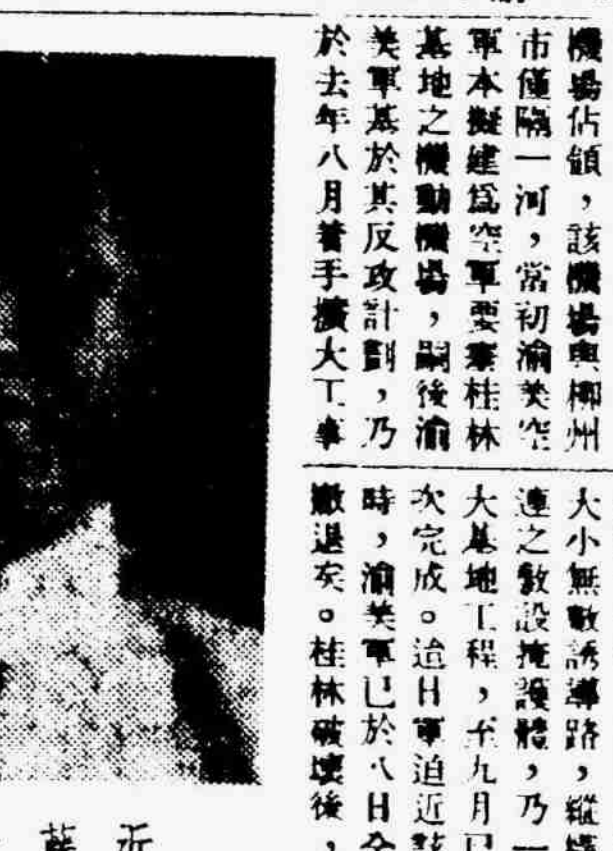 機場佔領，該機場與柳州
市僅隔一河，當初渝美空
軍本擬建為空軍要塞桂林
基地之機動機場，嗣後渝
美軍基於其反攻計劃，乃
於去年八月着手擴大工事
大小無數誘導路，縱橫
連之敷設掩護體，乃一
大基地工程，至九月已
次完成。迨日軍迫近該
時，渝美軍已於八日全
撤退矣。桂林破壞後，
近